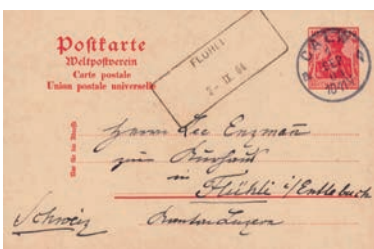 Postkarte
Weltpostverein
Carte postale
Union postale universelle
FLÜHLI
2-IX 04
CALW
Nur für die Adresse
Herrn Leo Enzmann
zum Kurhaus
in
Flühli i/Entlebuch
Schweiz
Kanton Luzern